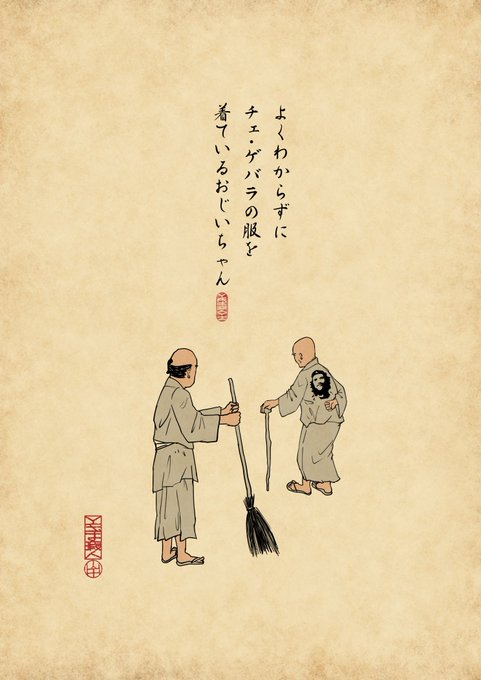 よくわからずに
チェ・ゲバラの服を
着ているおじいちゃん